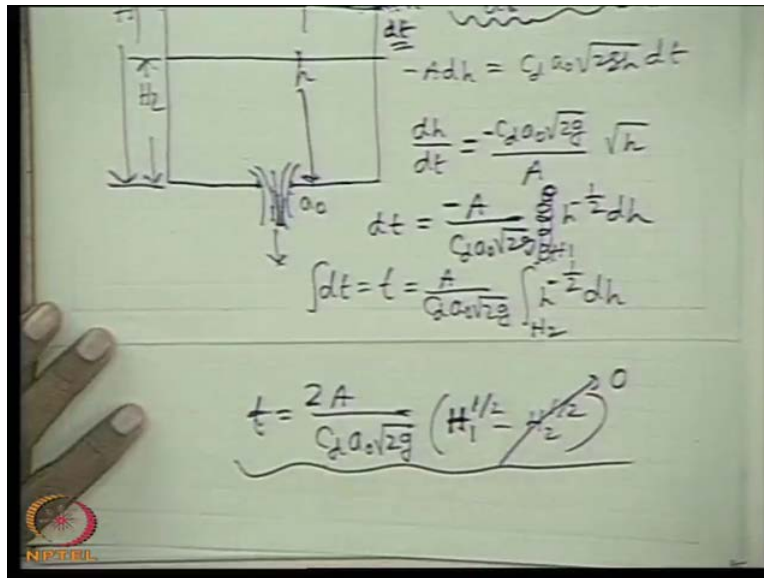 dt
-A dh = C_d a_0 √2gh dt
H_2
h
dh/dt = -C_d a_0 √2g / A √h
a_0
dt = -A / C_d a_0 √2g h^{-1/2} dh
∫dt = t = A / C_d a_0 √2g ∫_{H_2}^{H_1} h^{-1/2} dh
t = 2A / C_d a_0 √2g (H_1^{1/2} - H_2^{1/2}) 0
NPTEL